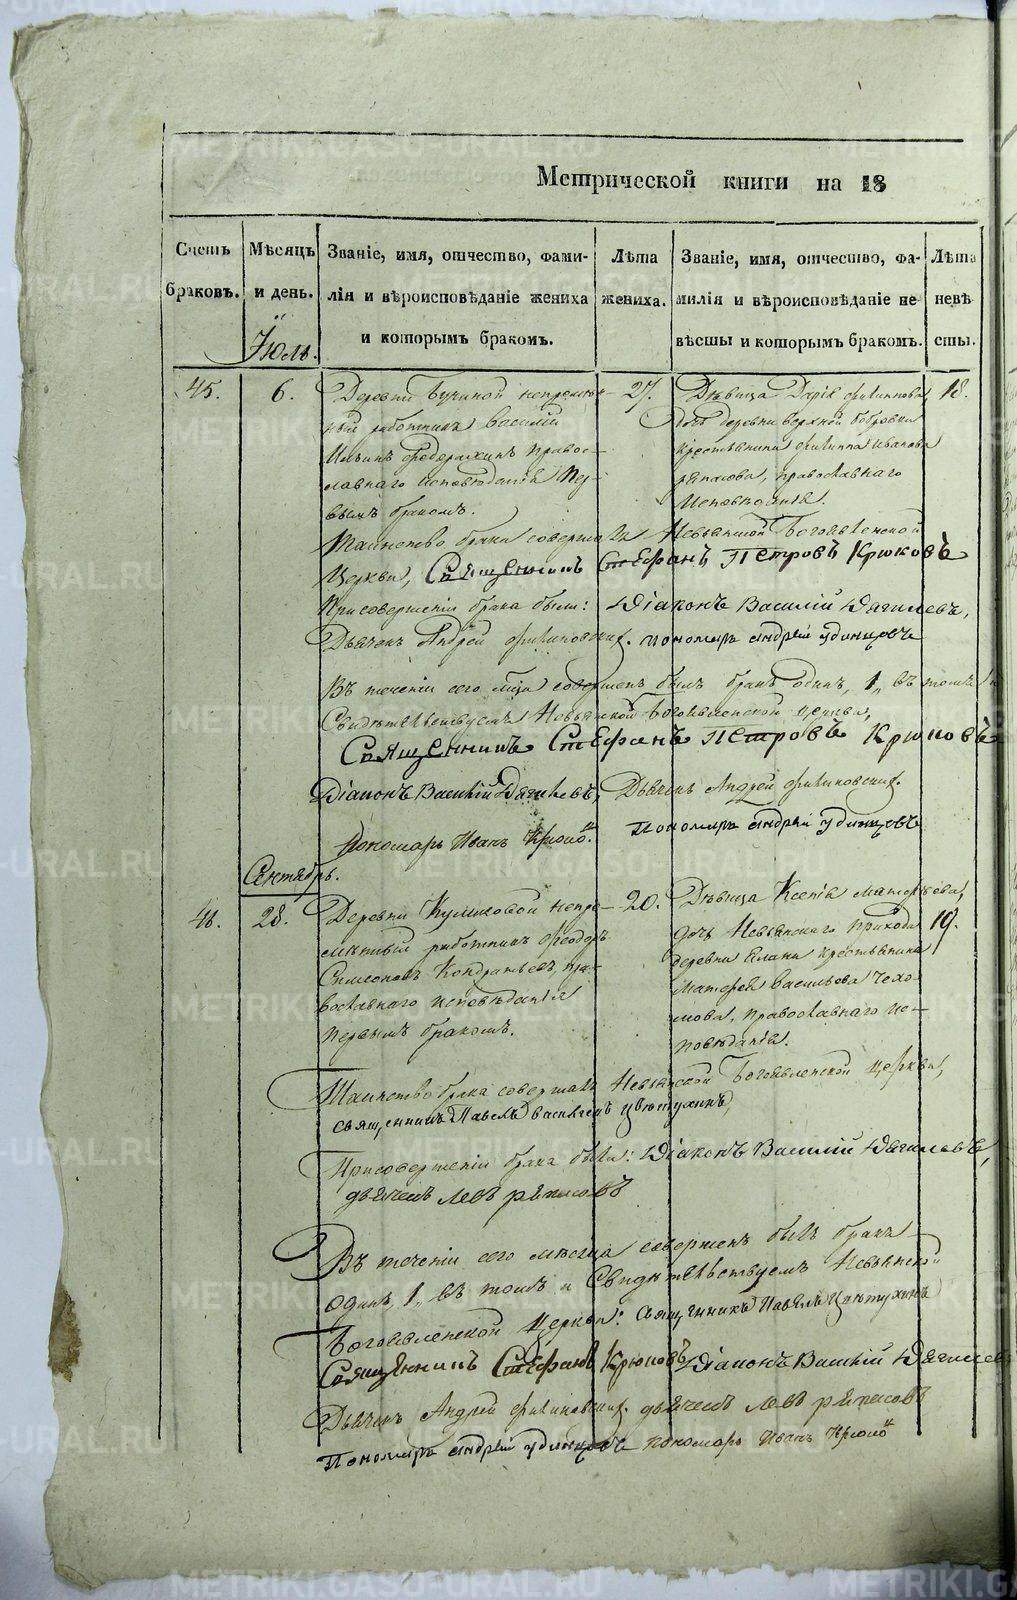 Метрической книги на 18
Счетъ браковъ.
Мѣсяцъ и день.
Званіе, имя, отчество, фами-
лія и вѣроисповѣданіе жениха
и которымъ бракомъ.
Лѣта жениха.
Званіе, имя, отчество, фа-
милія и вѣроисповѣданіе не-
вѣсты и которымъ бракомъ.
Лѣта невѣ сты.
Іюль.
45.
6.
Деревни непремѣн-
ный работникъ Василій
Ильинъ правос-
лавнаго исповѣданія пер-
вымъ бракомъ.
27.
Дѣвица Дарія Филиппова,
дочь деревни верхней бобровки
крестьянина Филиппа Иванова
православнаго
исповѣданія.
18.
Таинство брака совершалъ Невьянской Богоявленской
Церкви, Священникъ Стефанъ Петровъ Крюковъ
При совершеніи брака были: Діаконъ Василій Дягилевъ,
Дьячекъ Андрей Филиновскихъ. пономарь Андрей Удинцовъ
Въ теченіи сего мѣсяца совершенъ былъ бракъ одинъ, 1, въ томъ и
Свидѣтельствуемъ Невьянской Богоявленской церкви,
Священникъ Стефанъ Петровъ Крюковъ
Діаконъ Василій Дягилевъ, Дьячекъ Андрей Филиновскихъ.
пономарь Иванъ Пономарь Андрей Удинцовъ
Сентябрь.
46.
28.
Деревни Куликовой непре-
мѣнный работникъ Феодоръ
Симеоновъ Кондратьевъ, пра-
вославнаго исповѣданія
первымъ бракомъ.
20.
Дѣвица Ксенія Матѳеева,
дочь Невьянскаго прихода
деревни Елани крестьянина
Матѳея Васильева Чехо-
мова, православнаго ис-
повѣданія.
19.
Таинство брака совершалъ Невьянской Богоявленской церкви,
священникъ Павелъ Васильевъ Цвѣтухинъ,
При совершеніи брака были: Діаконъ Василій Дягилевъ,
дьячекъ Левъ Рѣпасовъ
Въ теченіи сего мѣсяца совершенъ былъ бракъ
одинъ, 1, въ томъ и Свидѣтельствуемъ Невьянской
Богоявленской церкви: священникъ Павелъ Цвѣтухинъ
Священникъ Стефанъ Крюковъ Діаконъ Василій Дягилевъ
Дьячекъ Андрей Филиновскихъ. дьячекъ Левъ Рѣпасовъ
Пономарь Андрей Удинцовъ пономарь Иванъ
METRIKI.GASO-URAL.RU